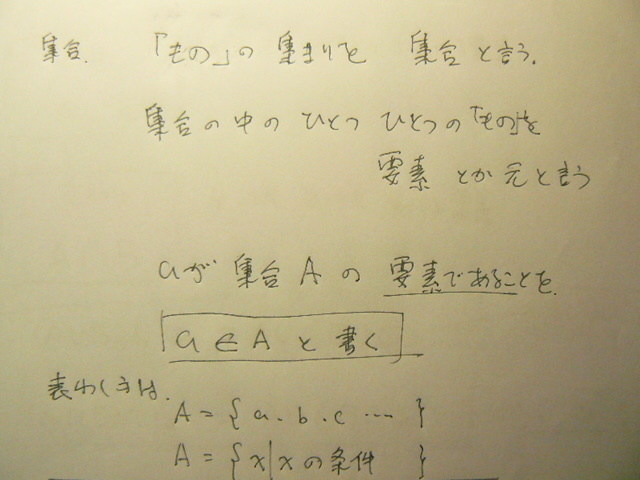 集合. 「もの」の 集まりを 集合 と言う.
集合の中の ひとつ ひとつの「もの」を
要素 とか 元と言う
aが 集合 A の 要素であることを.
a ∈ A と 書く
表わし方は.
A = { a. b. c … }
A = { x | x の条件 }